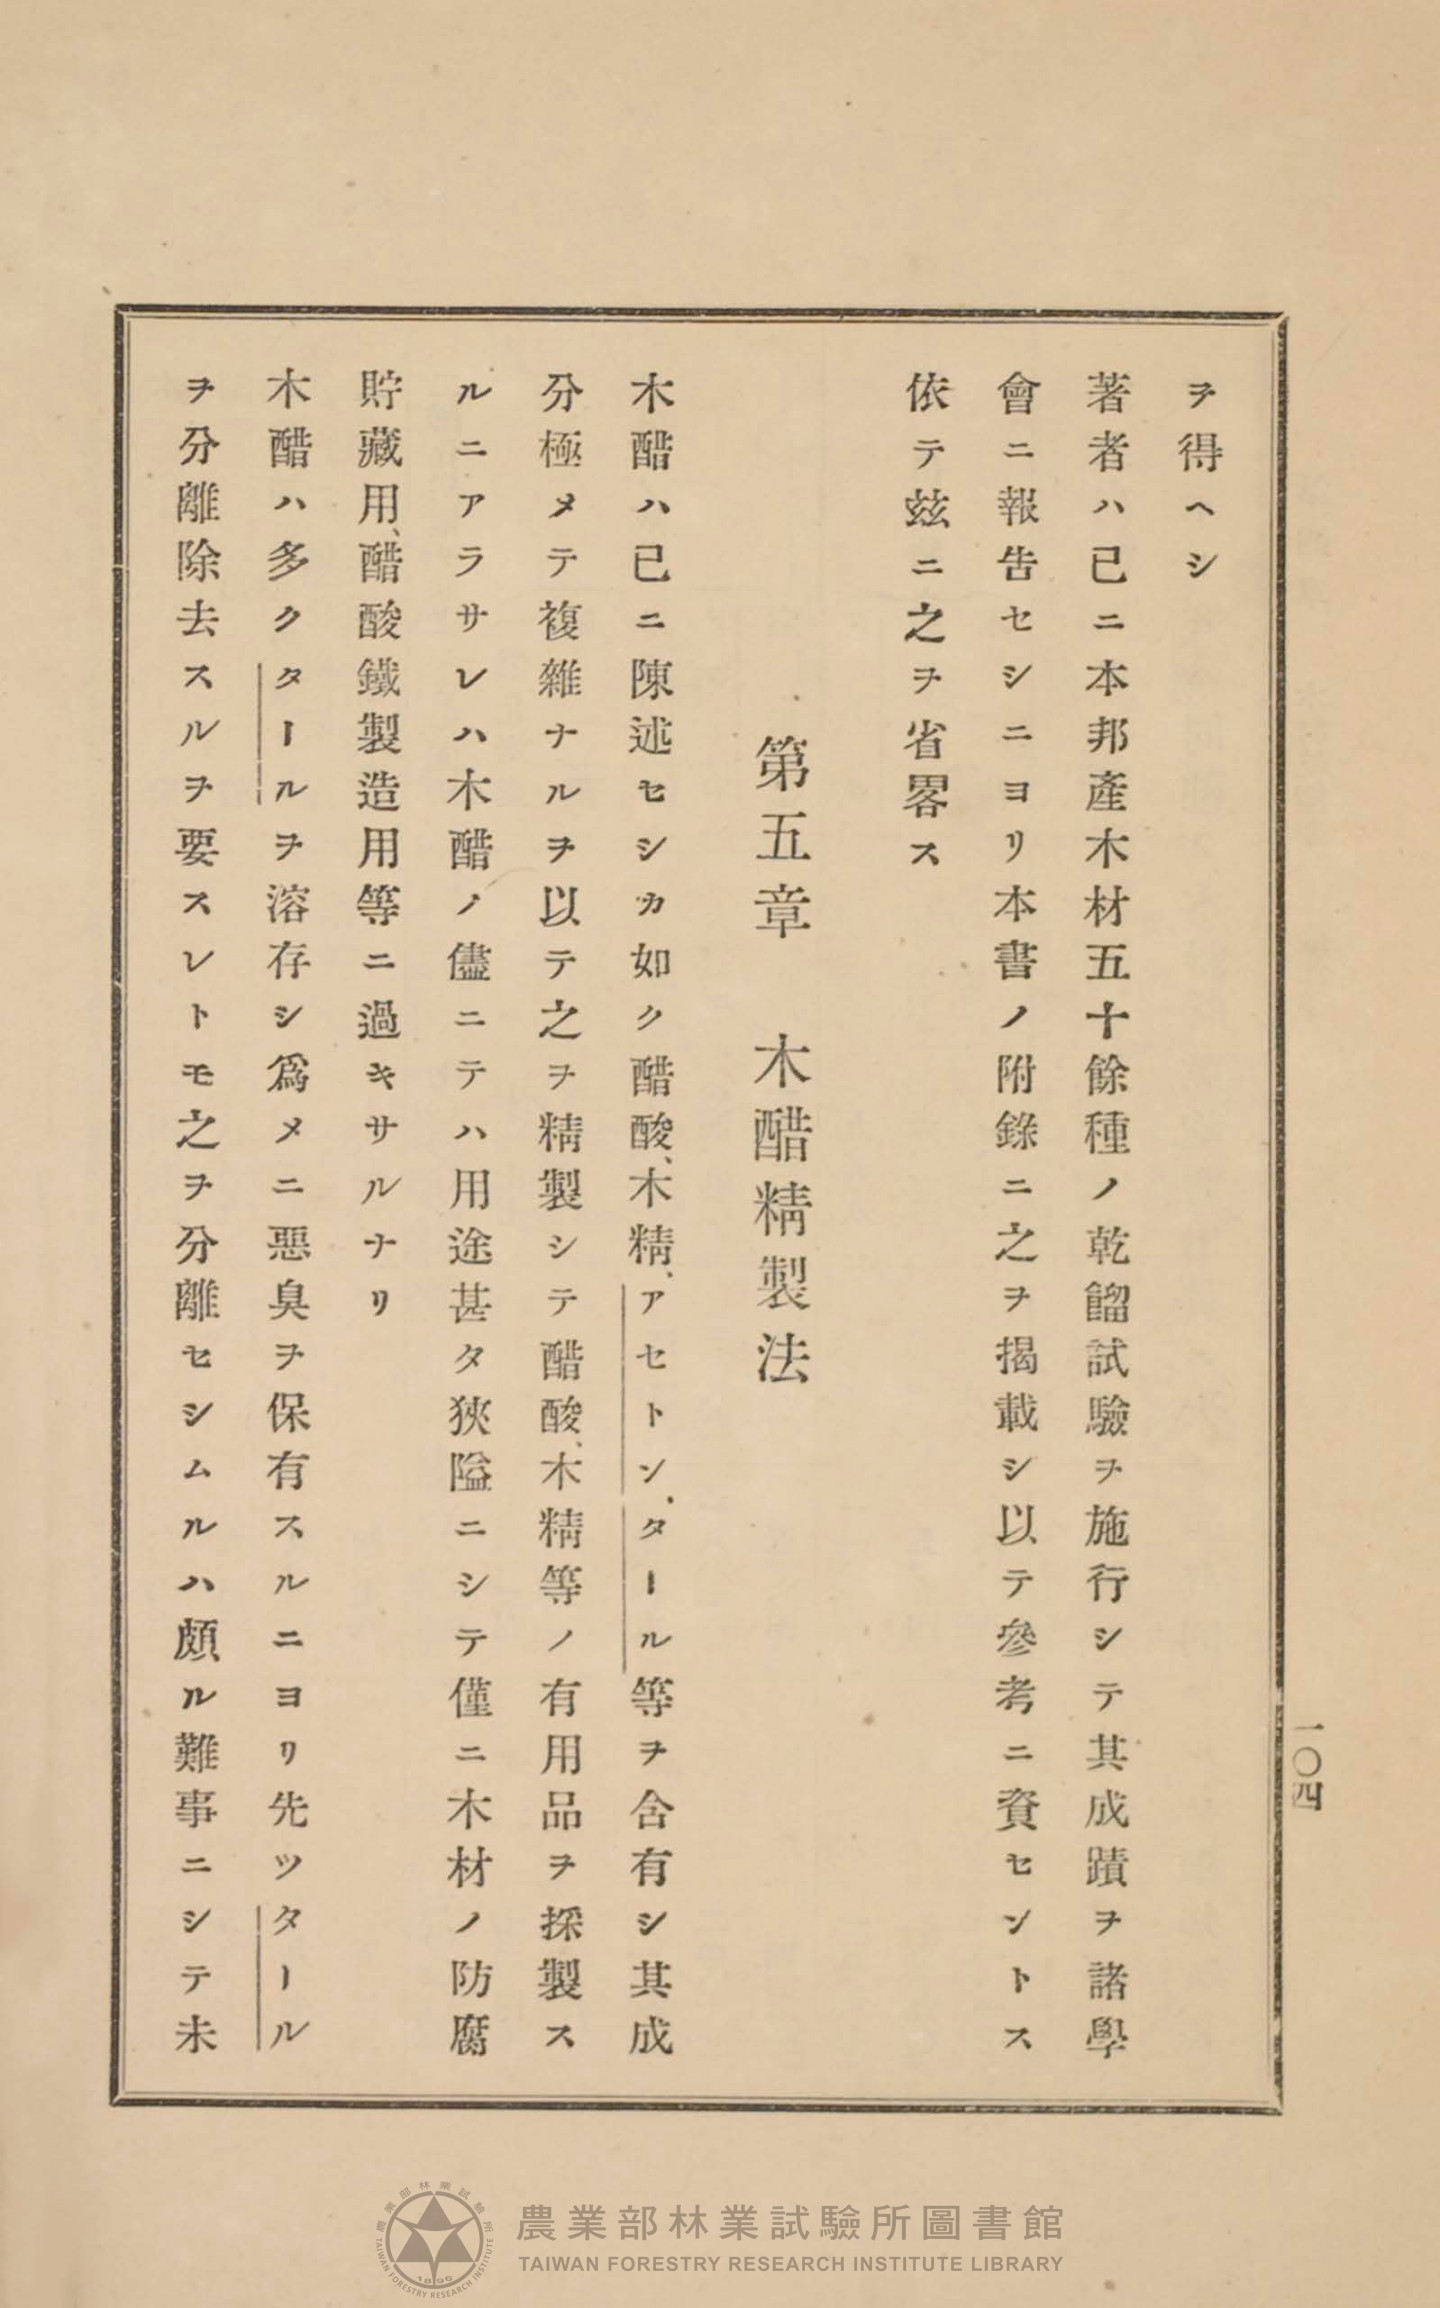 ヲ得ヘシ
著者ハ已ニ本邦產木材五十餘種ノ乾餾試驗ヲ施行シテ其成蹟ヲ諸學
會ニ報告セシニヨリ本書ノ附錄ニ之ヲ揭載シ以テ參考ニ資セントス
依テ玆ニ之ヲ省畧ス
第五章　木醋精製法
木醋ハ已ニ陳述セシカ如ク醋酸、木精、アセトン、タール等ヲ含有シ其成
分極メテ複雜ナルヲ以テ之ヲ精製シテ醋酸、木精等ノ有用品ヲ採製ス
ルニアラサレハ木醋ノ儘ニテハ用途甚タ狹隘ニシテ僅ニ木材ノ防腐
貯藏用、醋酸鐵製造用等ニ過キサルナリ
木醋ハ多クタールヲ溶存シ爲メニ惡臭ヲ保有スルニヨリ先ツタール
ヲ分離除去スルヲ要スレトモ之ヲ分離セシムルハ頗ル難事ニシテ未
一〇四
農業部林業試驗所
TAIWAN FORESTRY RESEARCH INSTITUTE
1896
農業部林業試驗所圖書館
TAIWAN FORESTRY RESEARCH INSTITUTE LIBRARY